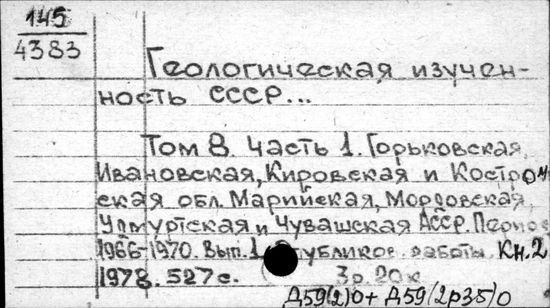 145
4383
Геологическая изучен-
ность СССР...
Том 8. Часть 1. Горьковская,
Ивановская, Кировская и Костром
ская обл. Марийская, Мордовская,
Удмуртская и Чувашская АССР. Период
1966-1970. Вып. 1 Опубликов. работы. Кн. 2
1978. 527 с. 3р. 20к
Д59(2)0 + Д59(2р35)0